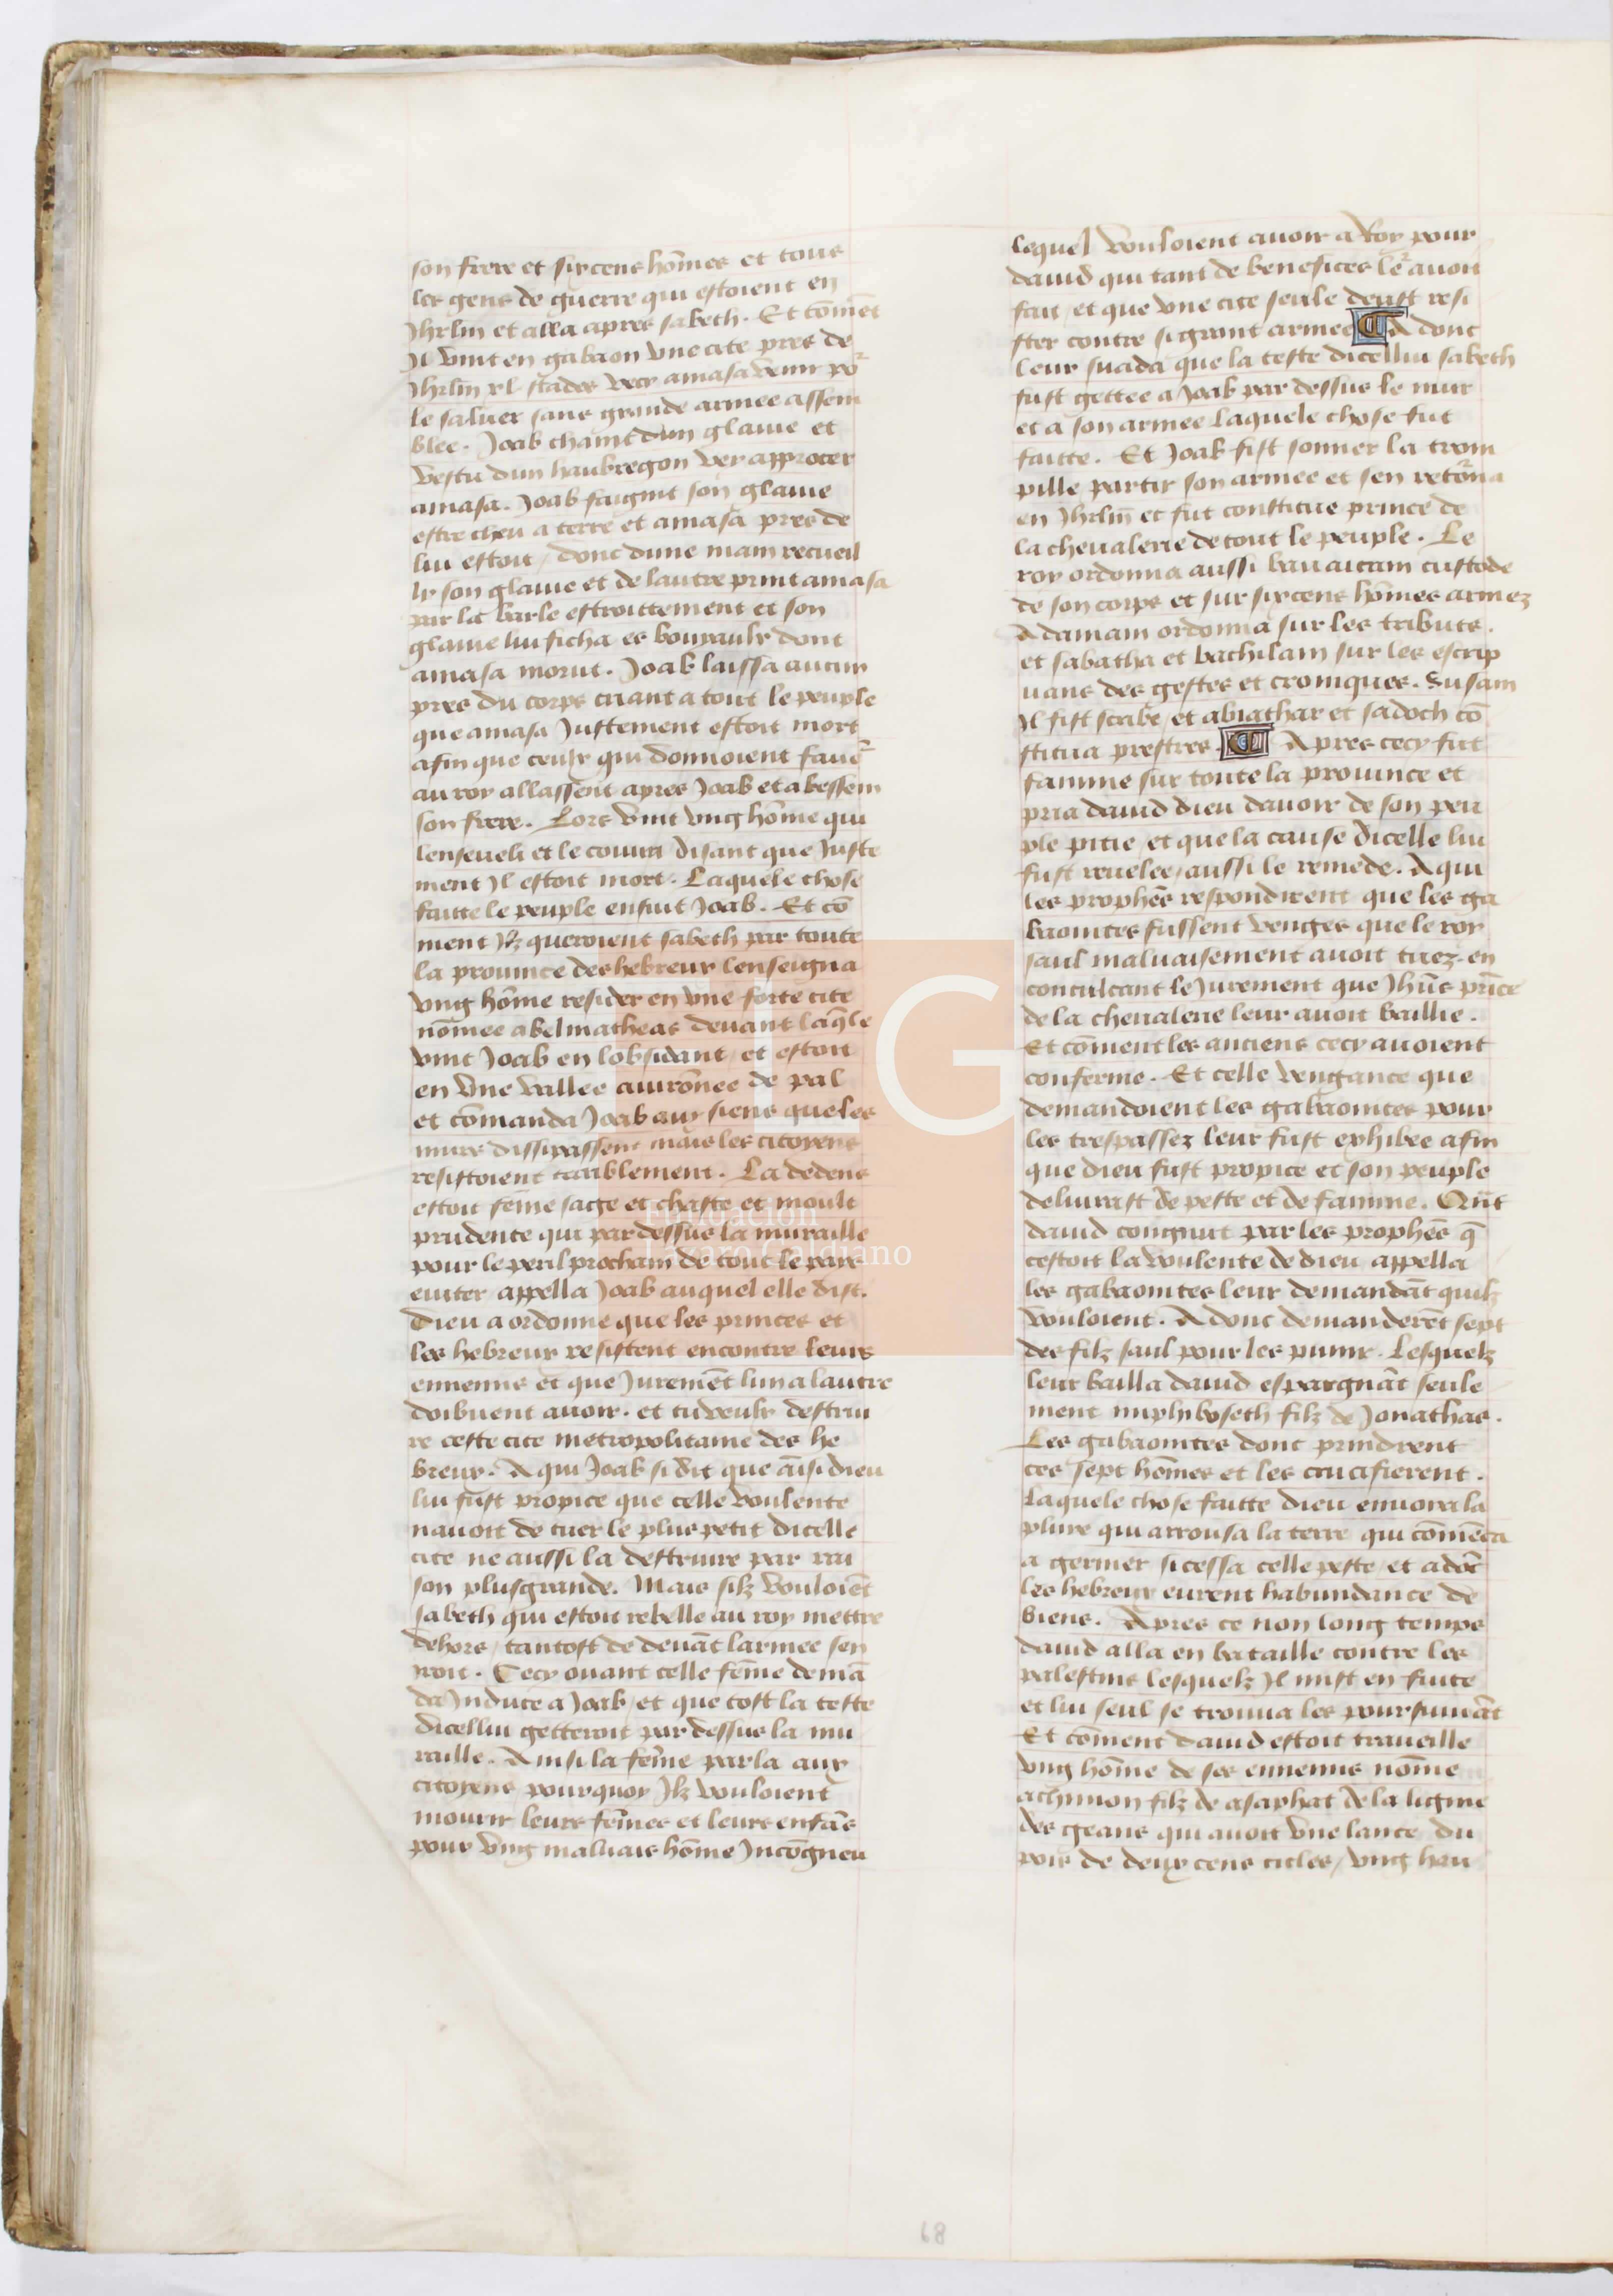 son frere et sixcens hõmes et tous
les gens de guerre qui estoient en
Jhrlm et alla apres sabeth. Et cõmēt
Il vint en gabaon vne cite pres de
Jhrlm xl stades veez amasa venir po͛
le saluer sans grande armee assem
blee. Joab chaint dun glaiue et
vestu dun haubregon ver approcer
amasa. Joab faignit son glaiue
estre cheu a terre et amasa pres de
lui estoit / donc dune main recueil
ly son glaiue et de lautre print amasa
par la barle estroittement et son
glaiue lui ficha es bouyaulx dont
amasa morut. Joab laissa aucun
pres du corps criant a tout le peuple
que amasa Justement estoit mort
afin que ceulx qui donnoient faue͛
au roy allassent apres Joab et abessem
son frere. Lors vint vng hõme qui
lenseueli et le couuri disant que Juste
ment Il estoit mort. Laquele chose
faitte le peuple ensuit Joab. Et cõ
ment Ilz queroient sabeth par toute
la prouince des hebreux lenseigna
vng hõme resider en vne forte cite
nõmee abelmatheas deuant laq̃le
vint Joab en lobsidant / et estoit
en vne vallee auirõnee de pal
et cõmanda Joab aux siens que les
murs dissipassent mais les citoyens
resistoient tarriblement. La dedens
estoit fēme sage et chaste et moult
prudente qui par dessus la muraille
pour le peril procham de tout le pays
euiter appella Joab auquel elle dist.
Dieu a ordonne que les princes et
les hebreux resistent encontre leurs
ennemis et que Juremēt lun a lautre
doibuent auoir. et tu veulx destrui
re ceste cite metropolitaine des he
breux. A qui Joab si dit que aīsi dieu
lui fust propice que celle voulente
nauoit de tuer le plus petit dicelle
cite ne aussi la destruire par rai
son plusgrande. Mais silz vouloiēt
sabeth qui estoit rebelle au roy mettre
dehors / tantost de deuãt larmee sen
iroit. Cecy oyant celle fēme demã
da Induce a Joab / et que tost la teste
dicellui getteroit par dessus la mu
raille. Ainsi la fēme parla aux
citoyens pourquoy Ilz vouloient
mourir leurs fēmes et leurs enfãs
pour vng maluais hõme Incõgneu
lequel vouloient auoir a Roy pour
dauid qui tant de benefices le͛ auoit
fait / et que vne cite seule deust resi
ster contre si grant armee ¶ A donc
leur suada que la teste dicellui sabeth
fust gettee a Joab par dessus le mur
et a son armee laquele chose fut
faitte. Et Joab fist sonner la trom
pille partir son armee et sen reto͛na
en Jhrlm et fut constitue prince de
la cheualerie de tout le peuple. Le
roy ordonna aussi banairam custode
de son corps et sur sixcens hõmes armez
Adamam ordonna sur les tributs.
et sabatha et bachilam sur les escrip
uans des gestes et croniques. Susam
Il fist scribe / et abiathar et sadoch cõ
stitua prestres. ¶ Apres cecy fut
famine sur toute la prouince et
pria dauid dieu dauoir de son peu
ple pitie / et que la cause dicelle lui
fust reuelee / aussi le remede. A qui
les prophēs respondirent que les ga
baonites fussent venges que le roy
saul maluaisement auoit tuez en
conculcant le Jurement que Jhũs prīce
de la cheualerie leur auoit baillie.
Et cõment les anciens cecy auoient
conferme. Et celle vengance que
demandoient les gabaonites pour
les trespassez leur fust exhibee afin
que dieu fust propice et son peuple
deliurast de peste et de famine. Qũt
dauid congnut par les prophēs q̃
cestoit la voulente de dieu appella
les gabaonites leur demandãt quilz
vouloient. A donc demanderēt sept
des filz saul pour les punir. Lesquelz
leur bailla dauid espargnãt seule
ment miphiboseth filz de Jonathas.
Les gabaonites donc prindrent
ces sept hõmes et les crucifierent.
Laquele chose faitte dieu enuoya la
pluye qui arrousa la terre qui cõmēca
a germer si cessa celle peste / et adõc
les hebreux eurent habundance de
biens. Apres ce non long temps
dauid alla en bataille contre les
palestins lesquelz Il mist en fuite
et lui seul se trouua les poursuiuãt
Et cõment dauid estoit traueille
vng hõme de ses ennemis nõme
achimon filz de asaphat de la lignie
des geans qui auoit vne lance du
pois de deux cens cicles / vng hau
LG
Fundación
Lázaro Galdiano
68